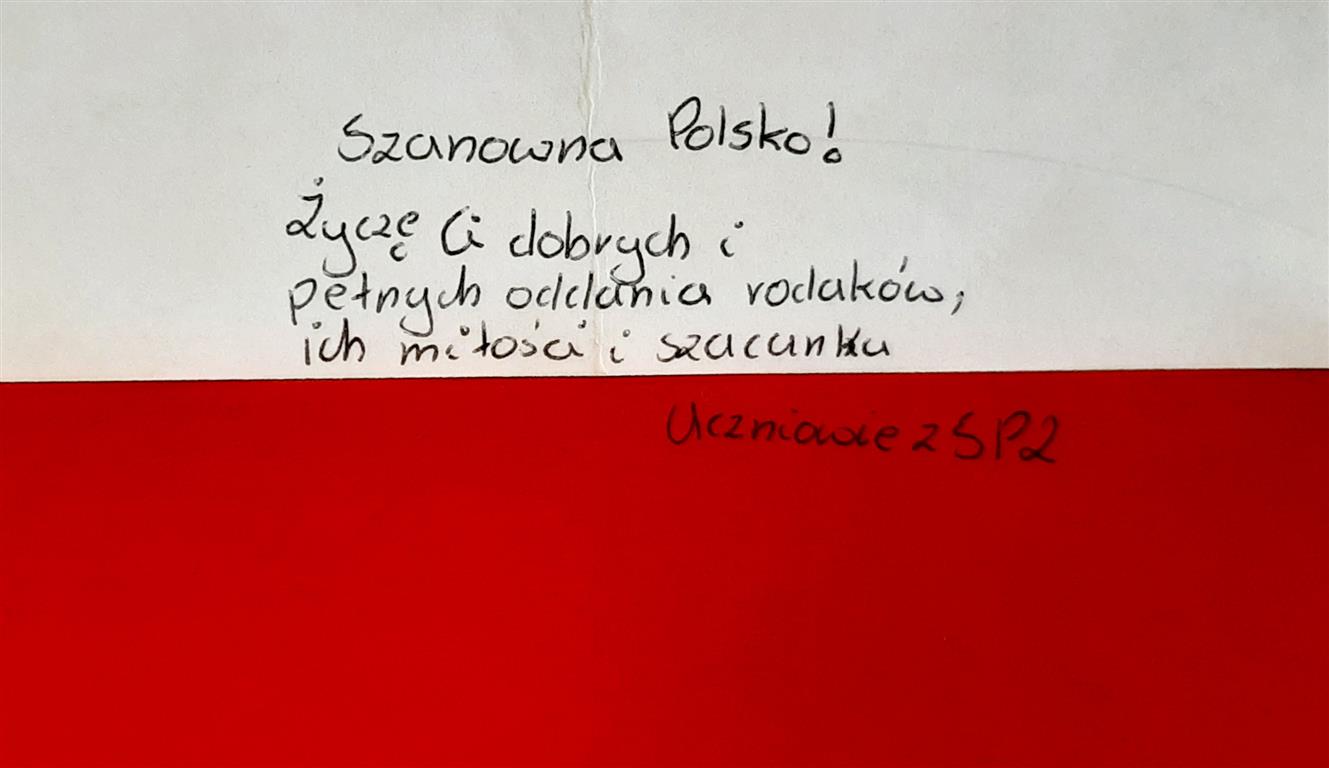 Szanowna Polsko!
Życzę Ci dobrych i
pełnych oddania rodaków,
ich miłości i szacunku
Uczniowie z SP2